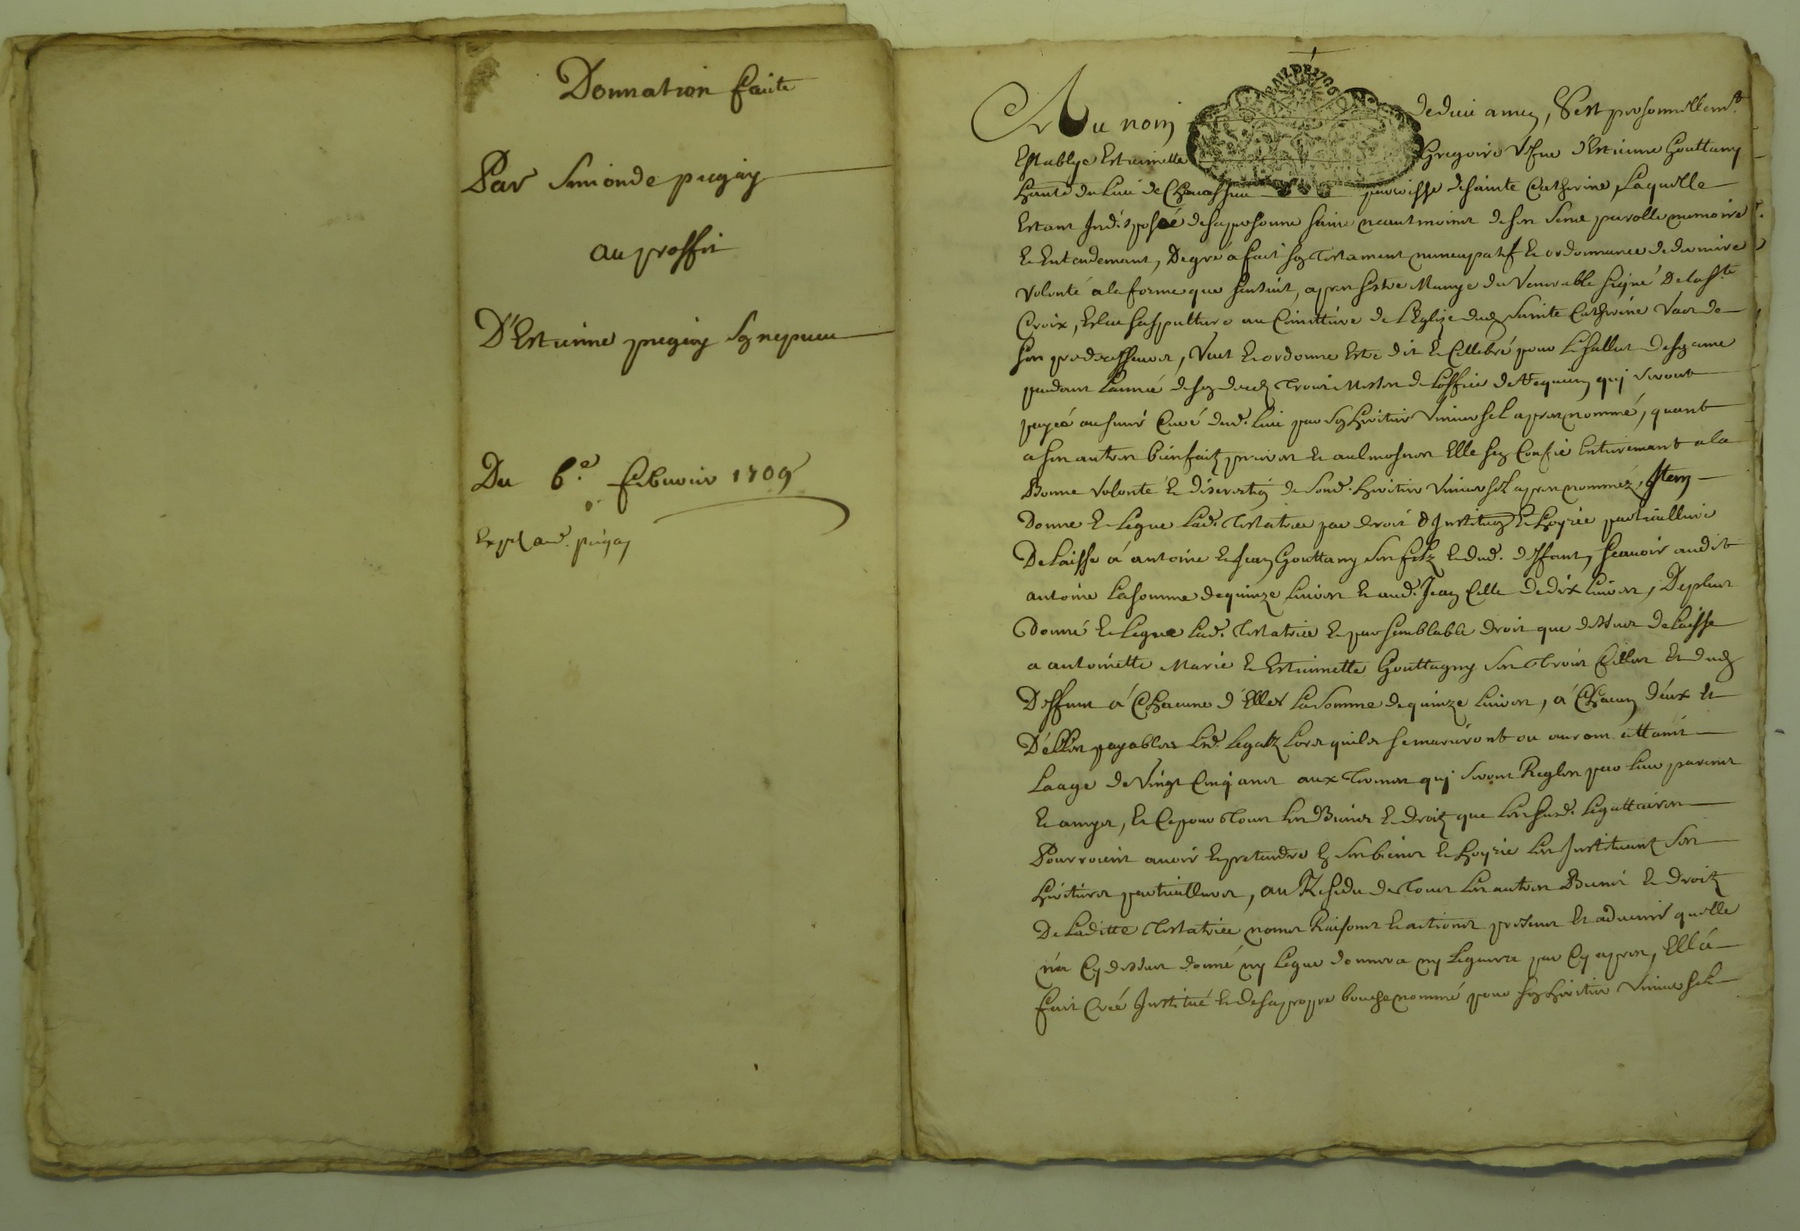 Donnation faite
Par Simonde pugny
au proffit
D'Estienne pugny son nepueu
Du 6.e febvrier 1709
Exp aud. pugny
Au nom de dieu amen, S'est personnellemt.
Establye Estiennette Gregoire vefue d'Estienne Gouttany
habte du lieu de parroisse de sainte Catherine, Laquelle
Estant Indisposée de sa personne saine neantmoins de ses sens parolle memoire
& Entendement, De gré a fait son Testament nuncupatif & ordonnance de derniere
volonté a la forme que sensuit, apres s'estre Munye du venerable signe De la Ste.
Croix, Esleu sa sepulture au Cimittiere de L'Eglise dud. Sainte Catherine Vers de
ses predecesseurs, Veut & ordonne Estre dit & Cellebré pour le sallut de son ame
pendant L'année de son deceds Trois Messes de L'office de Requiem qui seront
payés au sieur Curé dud. lieu par son heritier Universel apres nommé, quant
a ses autres bienfaits prieres & aulmosnes Elle s'en Confie Entierement a la
Bonne volonté & discretion de sond. heritier Universel apres nommé, Item
Donne & Legue Lad. Testatrice par droit d'Institution & hoyrie particulliere
Delaisse à antoine & Jean Gouttany ses fils & dud. deffunt, scavoir audit
antoine La somme de quinze livres & aud. Jean Celle de dix livres, De plus
Donne & Legue Lad. Testatrice & par semblable droit que dessus delaisse
a antoinette Marie & Estiennette Gouttagny ses Trois filles & dud.
Deffunt à Chacune d'Elles La somme de quinze livres, à Chacun d'eux &
D'elles payables Lesd. Legatz Lors quils se marieront ou auront attaint
Laage de vingt Cinq ans aux Termes qui seront Reglés par leurs parens
& amys, & Ce pour Tous Les Biens & droits que Les susd. Legattaires
Pourroient avoir & pretendre en ses biens & hoyrie Les Instituant ses
heritiers particulliers, au Residu de Tous Les autres Biens & droits
De Laditte Testatrice noms Raisons & actions presens & advenir quelle
n'a Cy dessus donné ny Legué donnera ny Leguera par Cy apres, Elle a
fait Créé Institué & de sa propre bouche nommé pour son heritier Universel